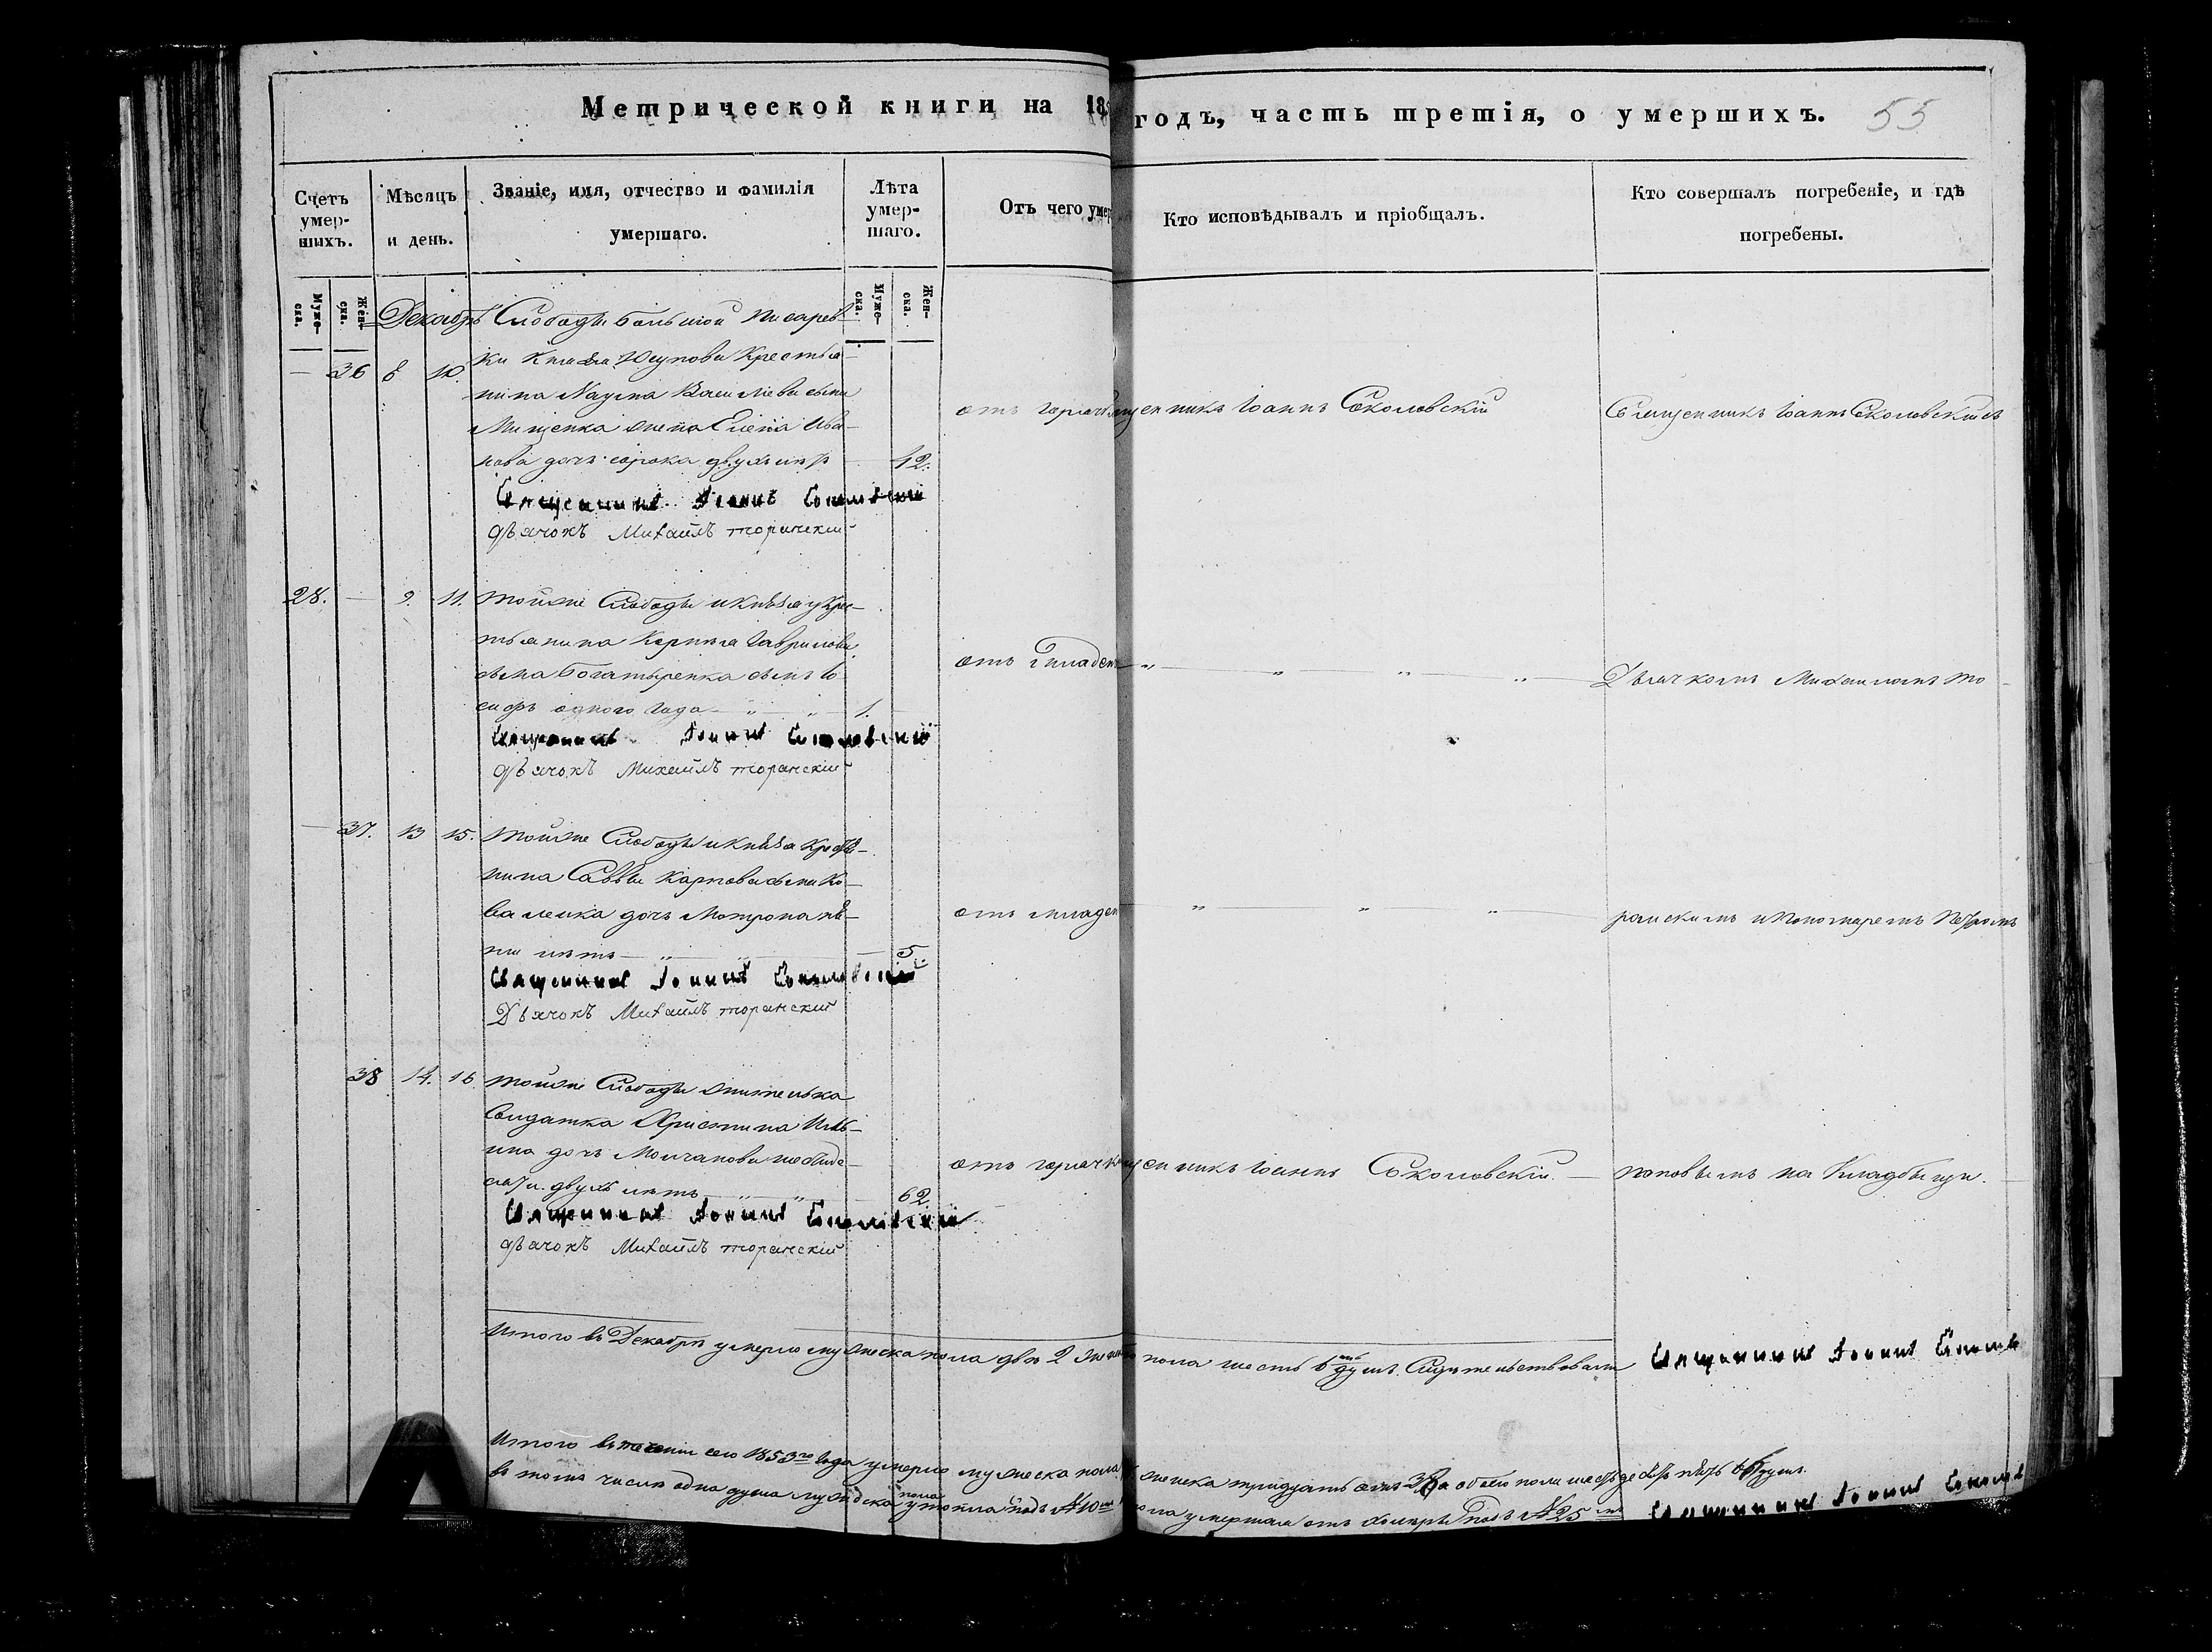 Метрической книги на 18
годъ, часть третія, о умершихъ. 55
Счетъ умер-шихъ.
Мѣсяцъ и день.
Званіе, имя, отчество и фамилія умершаго.
Лѣта умер-шаго.
Отъ чего умер
Кто исповѣдывалъ и пріобщалъ.
Кто совершалъ погребеніе, и гдѣ погребены.
Муже-ска.
Жен-ска.
Муже-ска.
Жен-ска.
Декабрь
Слободы Большой Писарев-
36 8 10. ки Князя Юсупова Крестья-
нина Наума Васильева сына
Мищенка жена Елена Ива-
нова дочь сорока двухъ лѣтъ 42.
отъ горячк
щенникъ Іоаннъ Соколовскій
Священникъ Іоаннъ Соколовскій съ
Священникъ Іоаннъ Соколовскій
дьячокъ Михаилъ торанскій
28. 9. 11. тойже Слободы и князя Крес-
тьянина Гаврилова
сына Богатыренка сынъ Іо
сифъ одного года 1.
отъ младен
Дьячкомъ Михаиломъ то
Священникъ Іоаннъ Соколовскій
дьячокъ Михаилъ торанскій
37. 13 15. тойже Слободы и князя
нина Саввы Карпова сына Ко-
валенка дочь Матрона пя-
ти лѣтъ 5.
отъ младен
ранскимъ и Пономаремъ Петромъ
Священникъ Іоаннъ Соколовскій
Дьячокъ Михаилъ торанскій
38 14. 16. тойже Слободы жителька
Солдатка Христина Иль-
ина дочь Молчанова шестьде-
сятъ двухъ лѣтъ 62
отъ горячк
щенникъ Іоаннъ Соколовскій.
поповымъ на Кладбищи.
Священникъ Іоаннъ Соколовскій
дьячокъ Михаилъ торанскій
Итого въ Декабрѣ умерло мужеска пола два 2 женска пола шесть 6 душъ. Свидѣтельствовали Священникъ Іоаннъ Соколов
Итого въ теченіи сего 1853го Года умерло мужеска пола женска тридцать а обоего пола шестьдесятъ душъ.
въ томъ числѣ одна душа мужеска пола утопла подъ №10мъ пола умершая отъ холеры подъ №25мъ Священникъ Іоаннъ Соколов